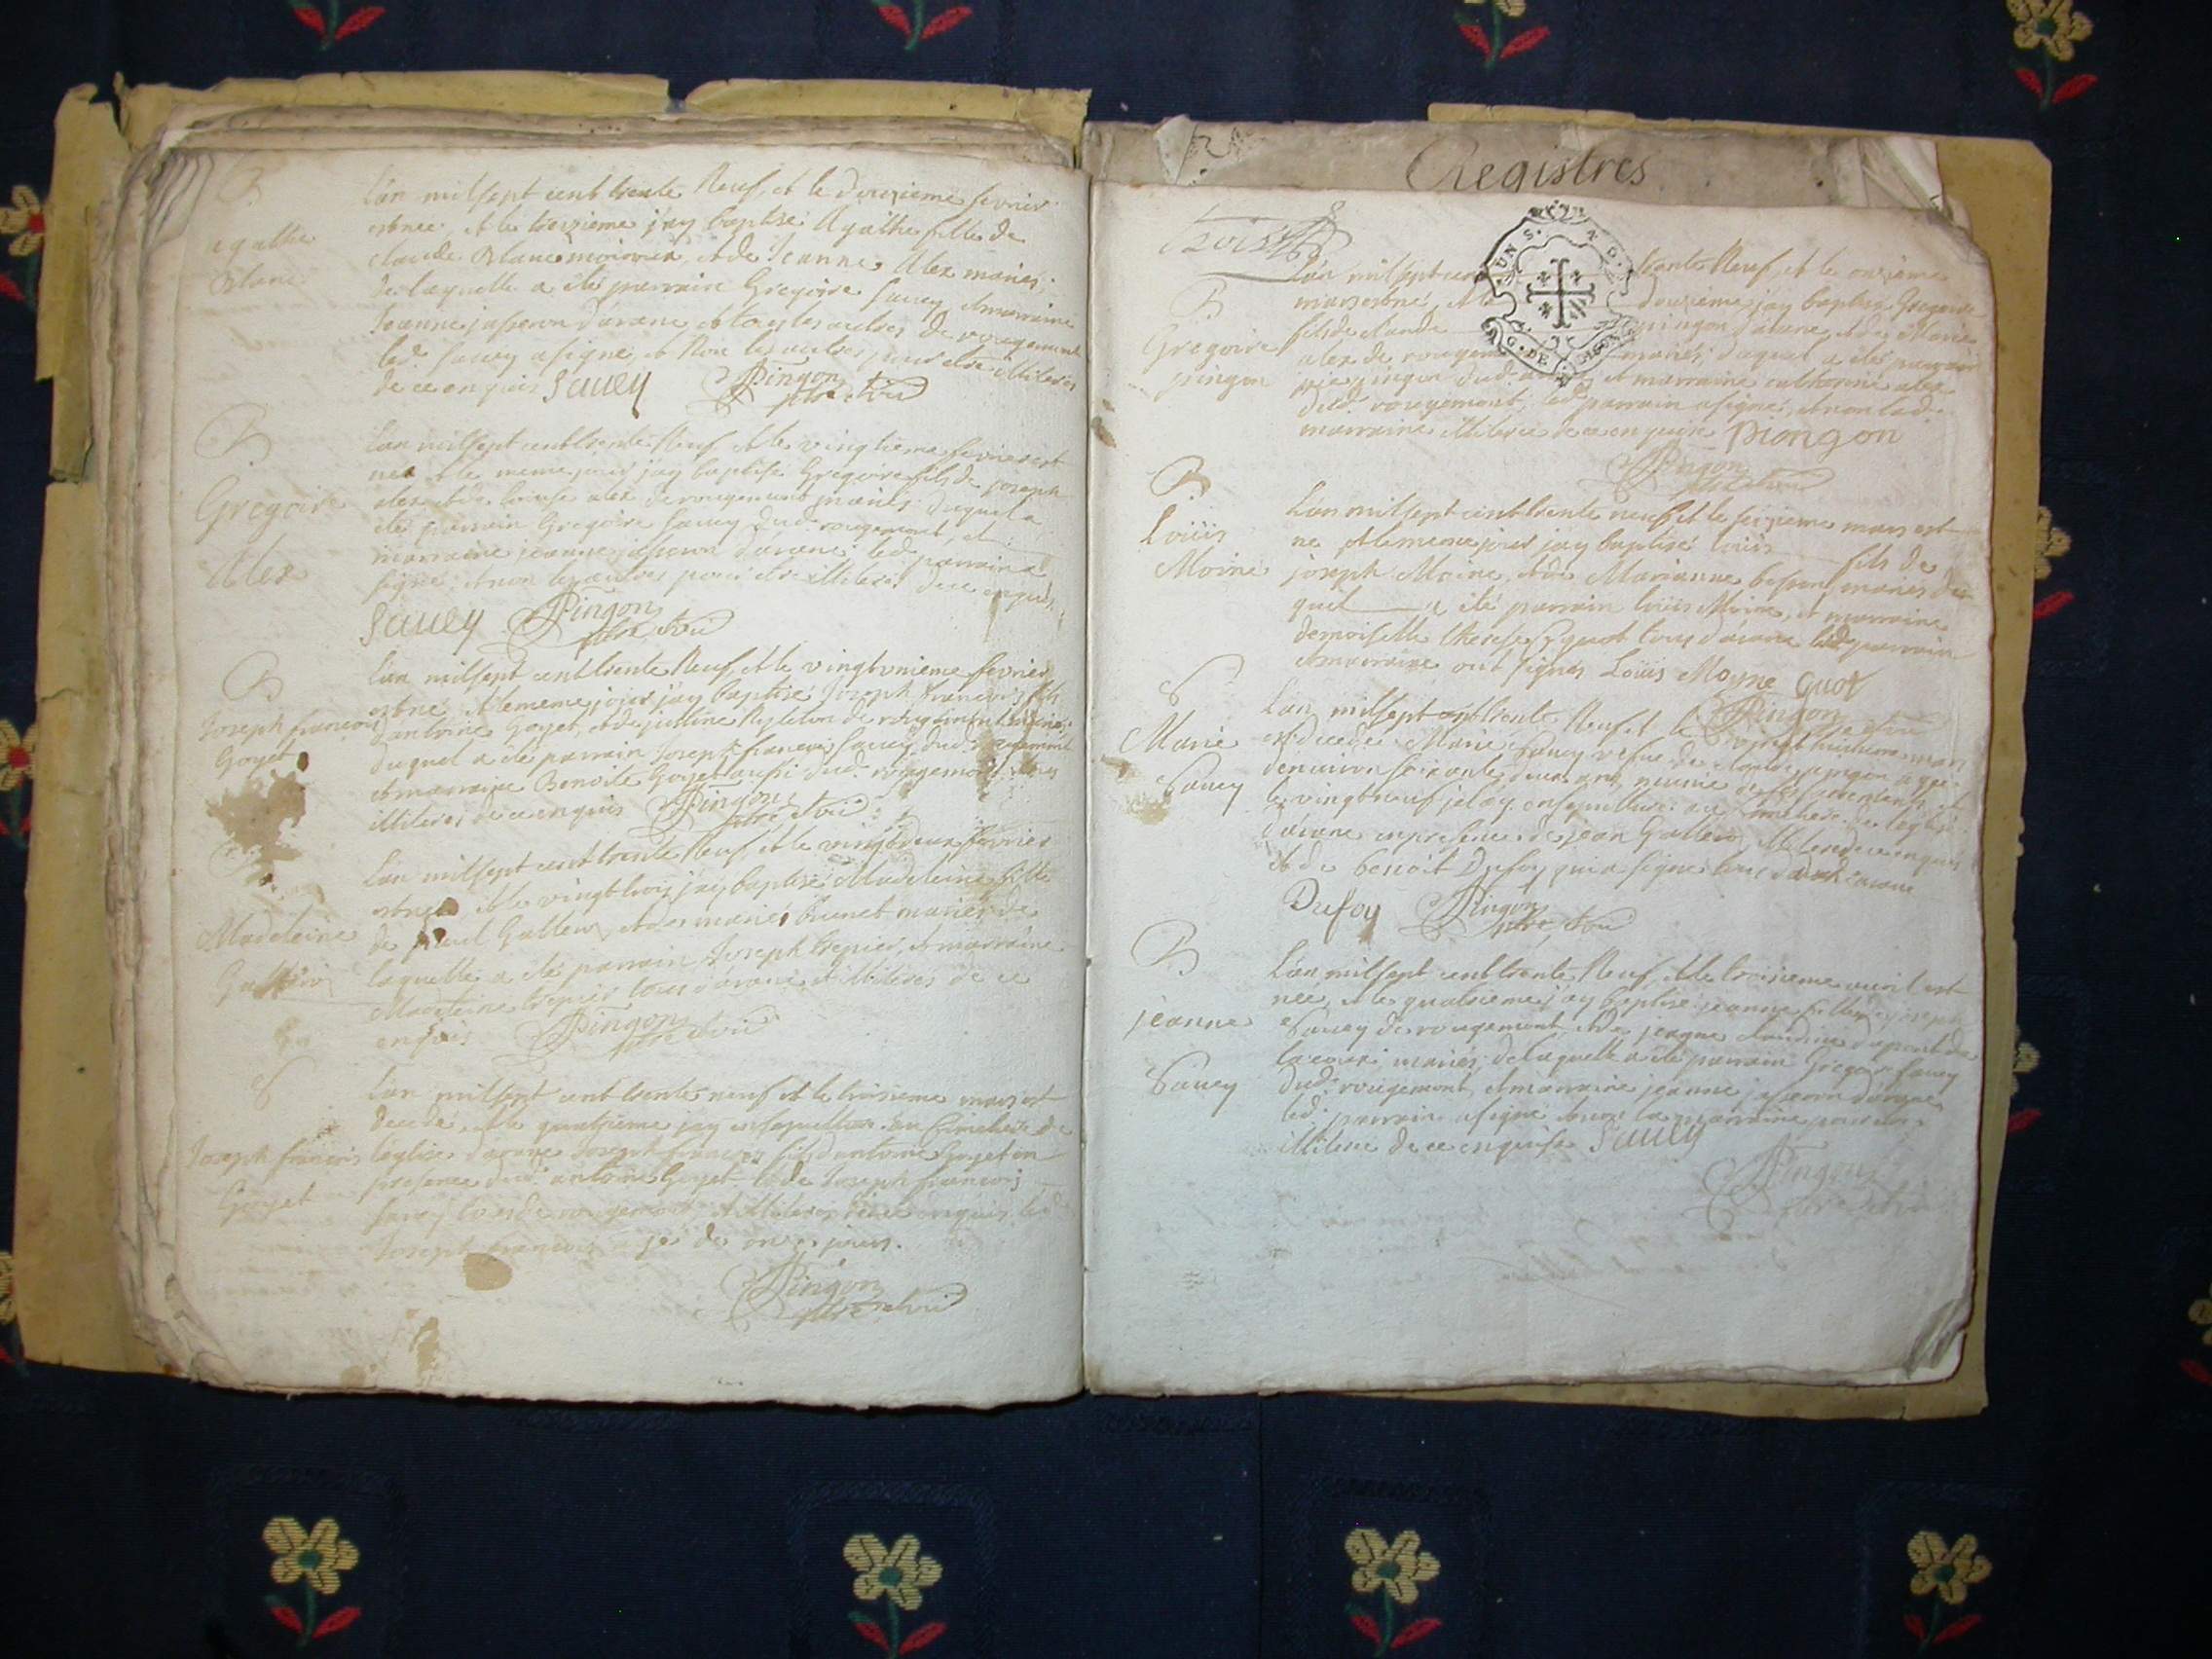 B
agathe
Blanc
L'an mil sept cent trente Neuf, et le douzieme fevrier
est née, et le treizieme j'ay baptisé Agathe fille de
claude Blanc moirin, et de Jeanne Alex mariés;
de laquelle a été parrain Gregoire Saucy et marraine
Jeanne jasseron d'arane, et tous les aultres de rougemont
led. Saucy a signé, et Non les aultres pour etre illiteres
de ce enquis Saucy Pingon
ptre et vic
B
Gregoire
Alex
L'an mil sept cent trente Neuf et le vingtieme fevrier est
né et le meme jour j'ay baptisé Gregoire fils de joseph
alex et de louise alex de rougemont mariés duquel a
été parrain Gregoire Saucy dud. rougemont, et
marraine jeanne jasseron d'arane; led. parrain a
signé et non les aultres pour etre illiteres de ce enquis
Saucy Pingon
ptre et vic
B
Joseph françois
Goyet
L'an mil sept cent trente Neuf, et le vingt unieme fevrier
est né et le meme jour j'ay baptisé Joseph françois fils
d'antoine Goyet, et de justine de rougemont mariés
duquel a été parrain Joseph françois Saucy dud. rougemont
et marraine Benoite Goyet aussi dud. rougemont tous
illiteres de ce enquis Pingon
ptre et vic
Madeleine
L'an mil sept cent trente Neuf, et le vingt deux fevrier
est née et le vingt trois j'ay baptisé Madeleine fille
de Galleur, et de marie brunet mariés de
laquelle a été parrain Joseph trepier, et marraine
Madeleine trepier tous d'arane, et illiteres de ce
enquis Pingon
ptre et vic
S
Joseph françois
Goyet
L'an mil sept cent trente neuf et le troisieme mars est
decedé, et le quatrieme j'ay ensepulturé au Cimetiere de
l'eglise d'arane Joseph françois fils d'antoine Goyet en
presence dud. antoine Goyet et de Joseph françois
Saucy tous de rougemont et illiteres de ce enquis led.
Joseph françois agé de onze jours.
Pingon
ptre et vic
Registres
trois
UN S. 4 D.
G. DE
B
Gregoire
pingon
L'an mil sept cent trente Neuf, et le onzieme
mars est né, et le douzieme j'ay baptisé Gregoire
fils de claude pingon d'arane, et de Marie
alex de rougemont mariés; duquel a été parrain
pingon dud. arane et marraine catherine alex
dud. rougemont; led. parrain a signé, et non lad.
marraine illiteree de ce enquise piongon
Pingon
ptre et vic
B
Loüis
Moine
L'an mil sept cent trente neuf et le seizieme mars est
né et le meme jour j'ay baptisé loüis fils de
joseph Moine, et de Marianne besson mariés du
quel a été parrain loüis Moine, et marraine
demoiselle therese Guot tous d'arane led. parrain
et marraine ont signés Loüis Moyne Guot
Pingon
S
Marie
Saucy
L'an mil sept cent trente Neuf et le vingt huitieme mars
est decedée Marie Saucy vefve de claude pingon agée
d'environ soixante deux ans, munie des sacrements et
le vingt neuf je l'ay ensepulturé au Cimetiere de l'eglise
d'arane en presence de jean Galleur illitere de ce enquis
et de benoit Dufoy qui a signé tous d'arane
Dufoy Pingon
ptre et vic
B
jeanne
Saucy
L'an mil sept cent trente Neuf, et le troisieme avril est
née, et le quatrieme j'ay baptisé jeanne fille de joseph
Saucy de rougemont, et de jeanne claudine dupont de
mariés; de laquelle a été parrain Gregoire Saucy
dud. rougemont, et marraine jeanne jasseron d'arane,
led. parrain a signé et non la marraine pour etre
illiteree de ce enquise Saucy
Pingon
ptre et vic